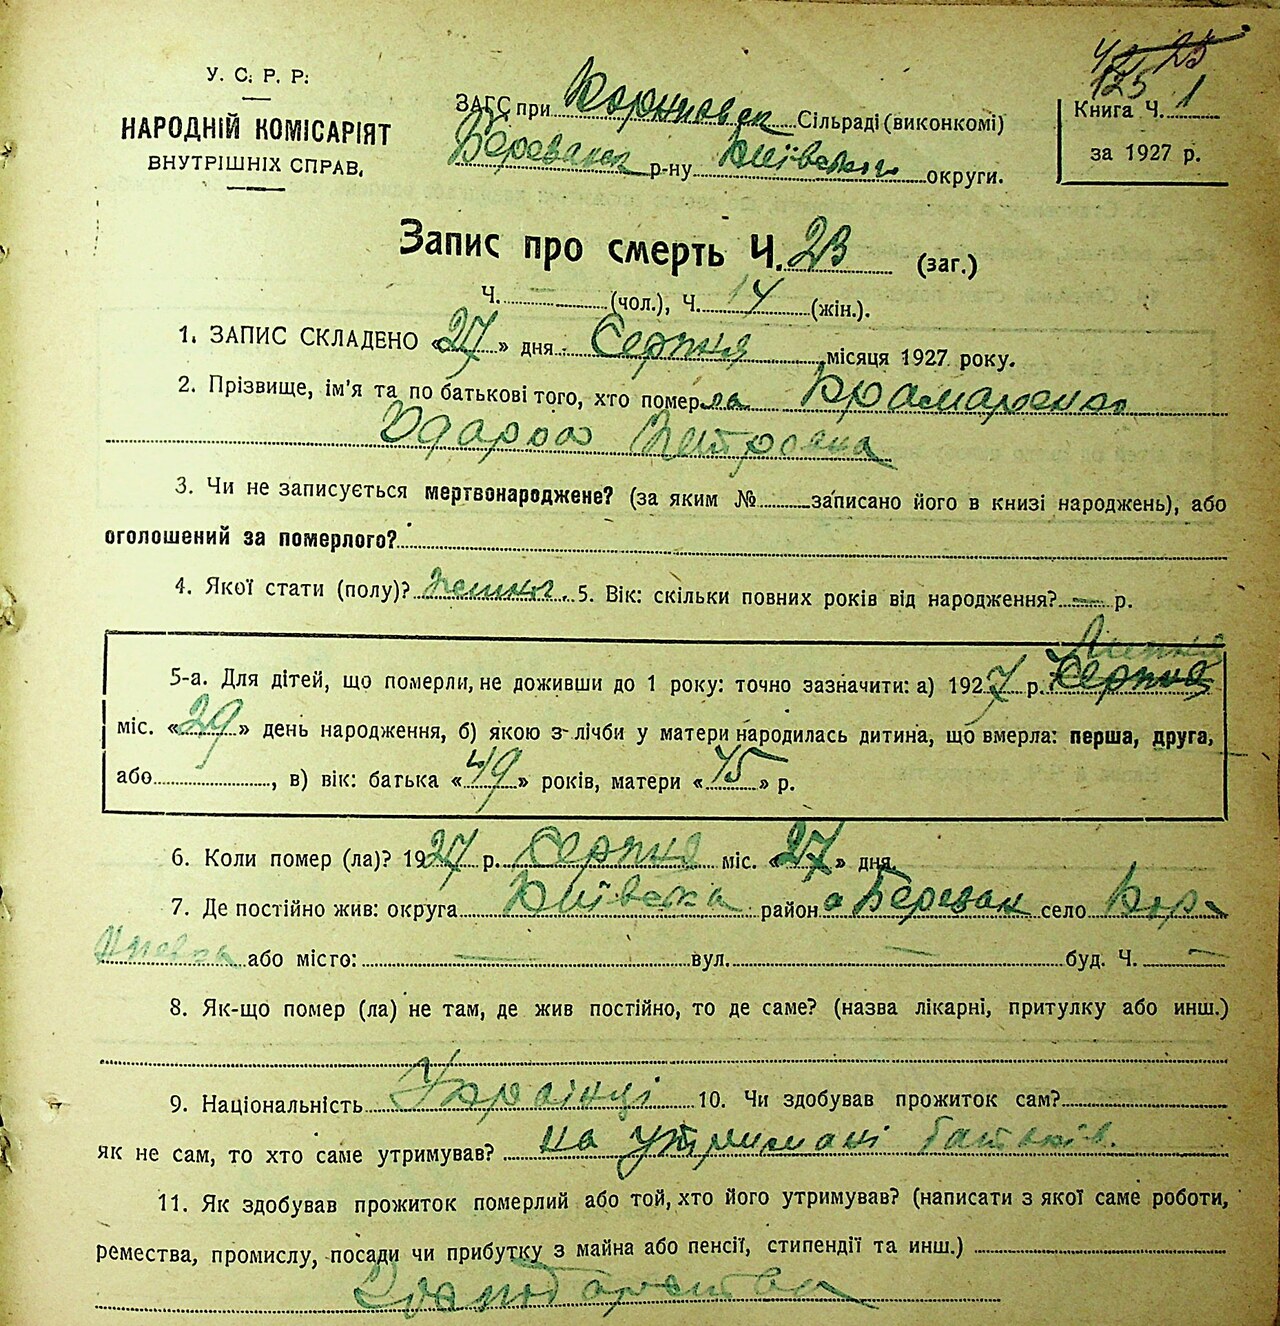 У. С. Р. Р.
НАРОДНІЙ КОМІСАРІЯТ
ВНУТРІШНІХ СПРАВ.
125
ЗАГС при Сільраді (виконкомі)
р-ну Київської округи.
Книга Ч. 1
за 1927 р.
Запис про смерть Ч. 23 (заг.)
Ч. (чол.), Ч. 14 (жін.).
1. ЗАПИС СКЛАДЕНО «27» дня Серпня місяця 1927 року.
2. Прізвище, ім'я та по батькові того, хто померла Крамаренко
Одарка Петровна
3. Чи не записується мертвонароджене? (за яким № записано його в книзі народжень), або
оголошений за померлого?
4. Якої стати (полу)? 5. Вік: скільки повних років від народження? — р.
Липня
5-а. Для дітей, що померли, не доживши до 1 року: точно зазначити: а) 1927 р. Серпня
міс. «29» день народження, б) якою з-лічби у матери народилась дитина, що вмерла: перша, друга,
або, в) вік: батька «49» років, матери «45» р.
6. Коли помер (ла)? 1927 р. Серпня міс. «27» дня.
7. Де постійно жив: округа Київська район Березан село Кор-
або місто: — вул. — буд. Ч. —
8. Як-що помер (ла) не там, де жив постійно, то де саме? (назва лікарні, притулку або инш.)
9. Національність Українці 10. Чи здобував прожиток сам?
як не сам, то хто саме утримував? на утримані батьків.
11. Як здобував прожиток померлий або той, хто його утримував? (написати з якої саме роботи,
ремества, промислу, посади чи прибутку з майна або пенсії, стипендії та инш.)